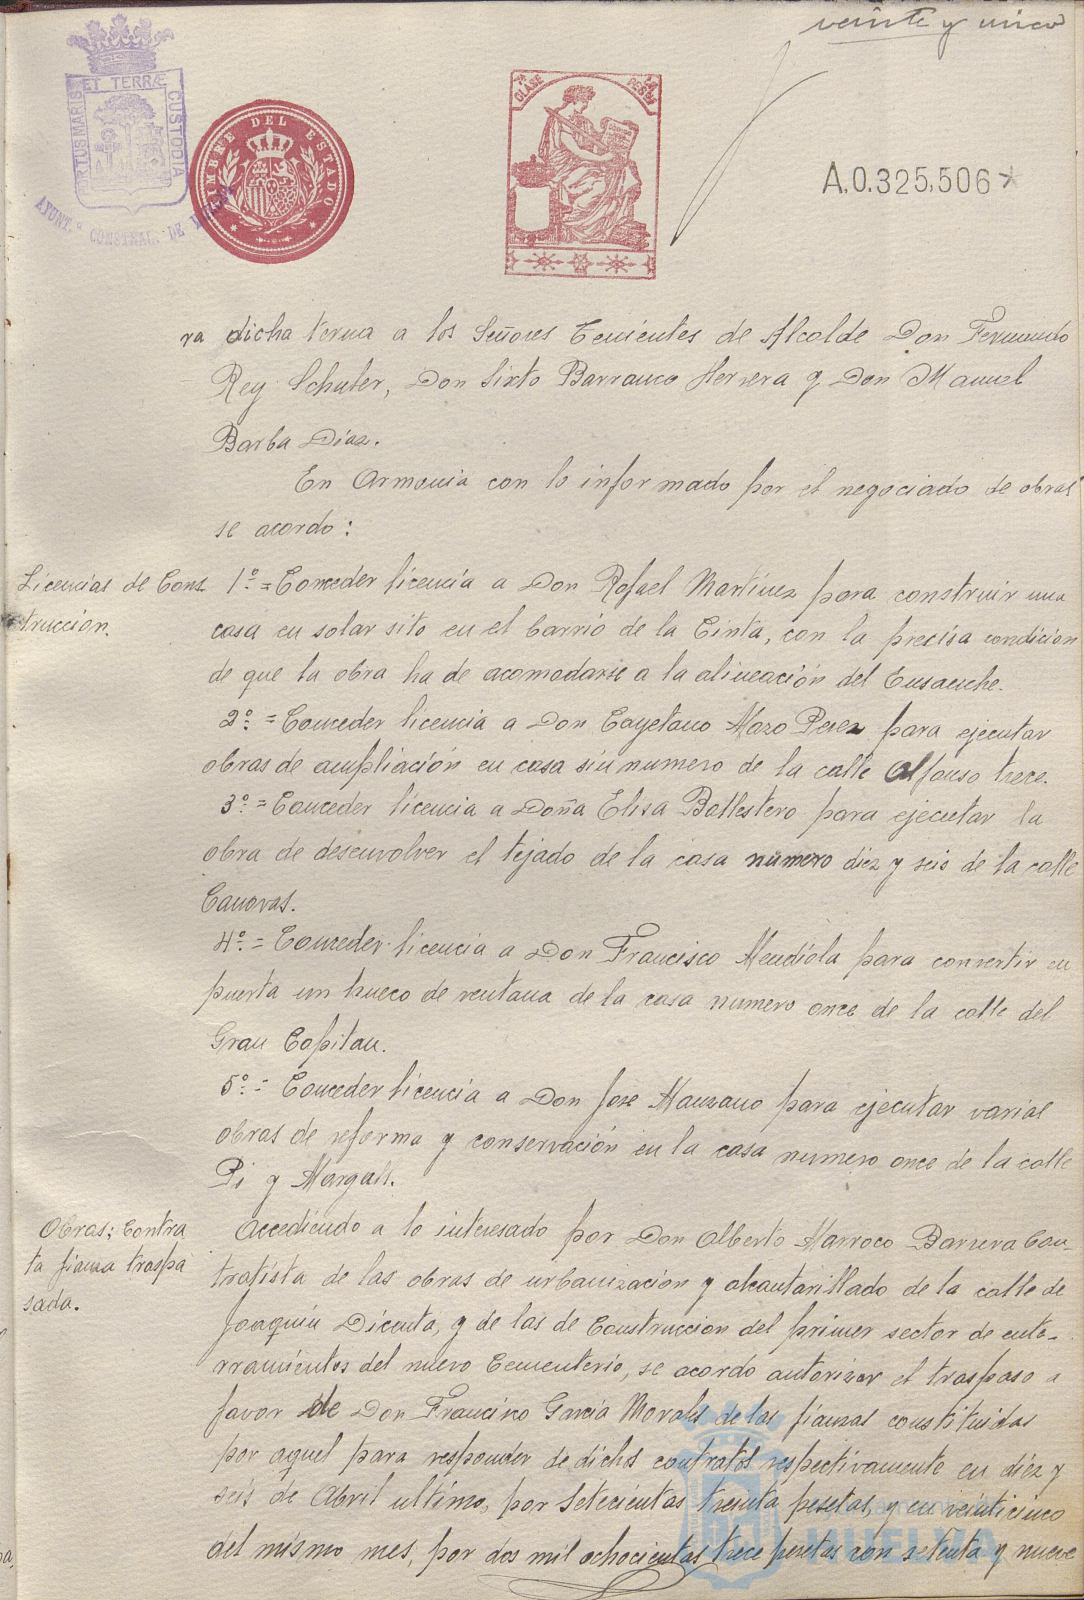 veinte y cinco
PORTUS MARIS ET TERRÆ CUSTODIA
AYUNT.º CONSTNAL. DE HUELVA
TIMBRE DEL ESTADO
CLASE
PESETAS
A.0.325,506*
ra dicha terna a los Señores Tenientes de Alcalde Don Fernando
Rey Schuler, Don Sixto Barranco Herrera y Don Manuel
Barba Díaz.
En Armonia con lo informado por el negociado de obras
se acordo:
Licencias de Cons-
trucción.
1º = Conceder licencia a Don Rafael Martínez para construir una
casa en solar sito en el barrio de la Cinta, con la precisa condicion
de que la obra ha de acomodarse a la alineación del Ensanche.
2º = Conceder licencia a Don Cayetano Mazo Perez para ejecutar
obras de ampliación en casa sin numero de la calle Alfonso trece.
3º = Conceder licencia a Doña Elisa Ballestero para ejecutar la
obra de desenvolver el tejado de la casa número diez y seis de la calle
Canovas.
4º = Conceder licencia a Don Francisco Mendiola para convertir en
puerta un hueco de ventana de la casa numero once de la calle del
Gran Capitan.
5º = Conceder licencia a Don Jose Manzano para ejecutar varias
obras de reforma y conservación en la casa numero once de la calle
Pi y Margall.
Obras; Contra
ta fianza traspa
sada.
Accediendo a lo interesado por Don Alberto Marroco Barrera Con-
tratista de las obras de urbanización y alcantarillado de la calle de
Joaquín Dicenta, y de las de Construccion del primer sector de ente-
rramientos del nuevo Cementerio, se acordo autorizar el traspaso a
favor de Don Francisco García Morales de las fianzas constituidas
por aquel para responder de dichos contratos respectivamente en diez y
seis de Abril ultimo, por setecientas treinta pesetas, y en veinticinco
del mismo mes, por dos mil ochocientas trece pesetas con setenta y nueve
Ayuntamiento de
HUELVA